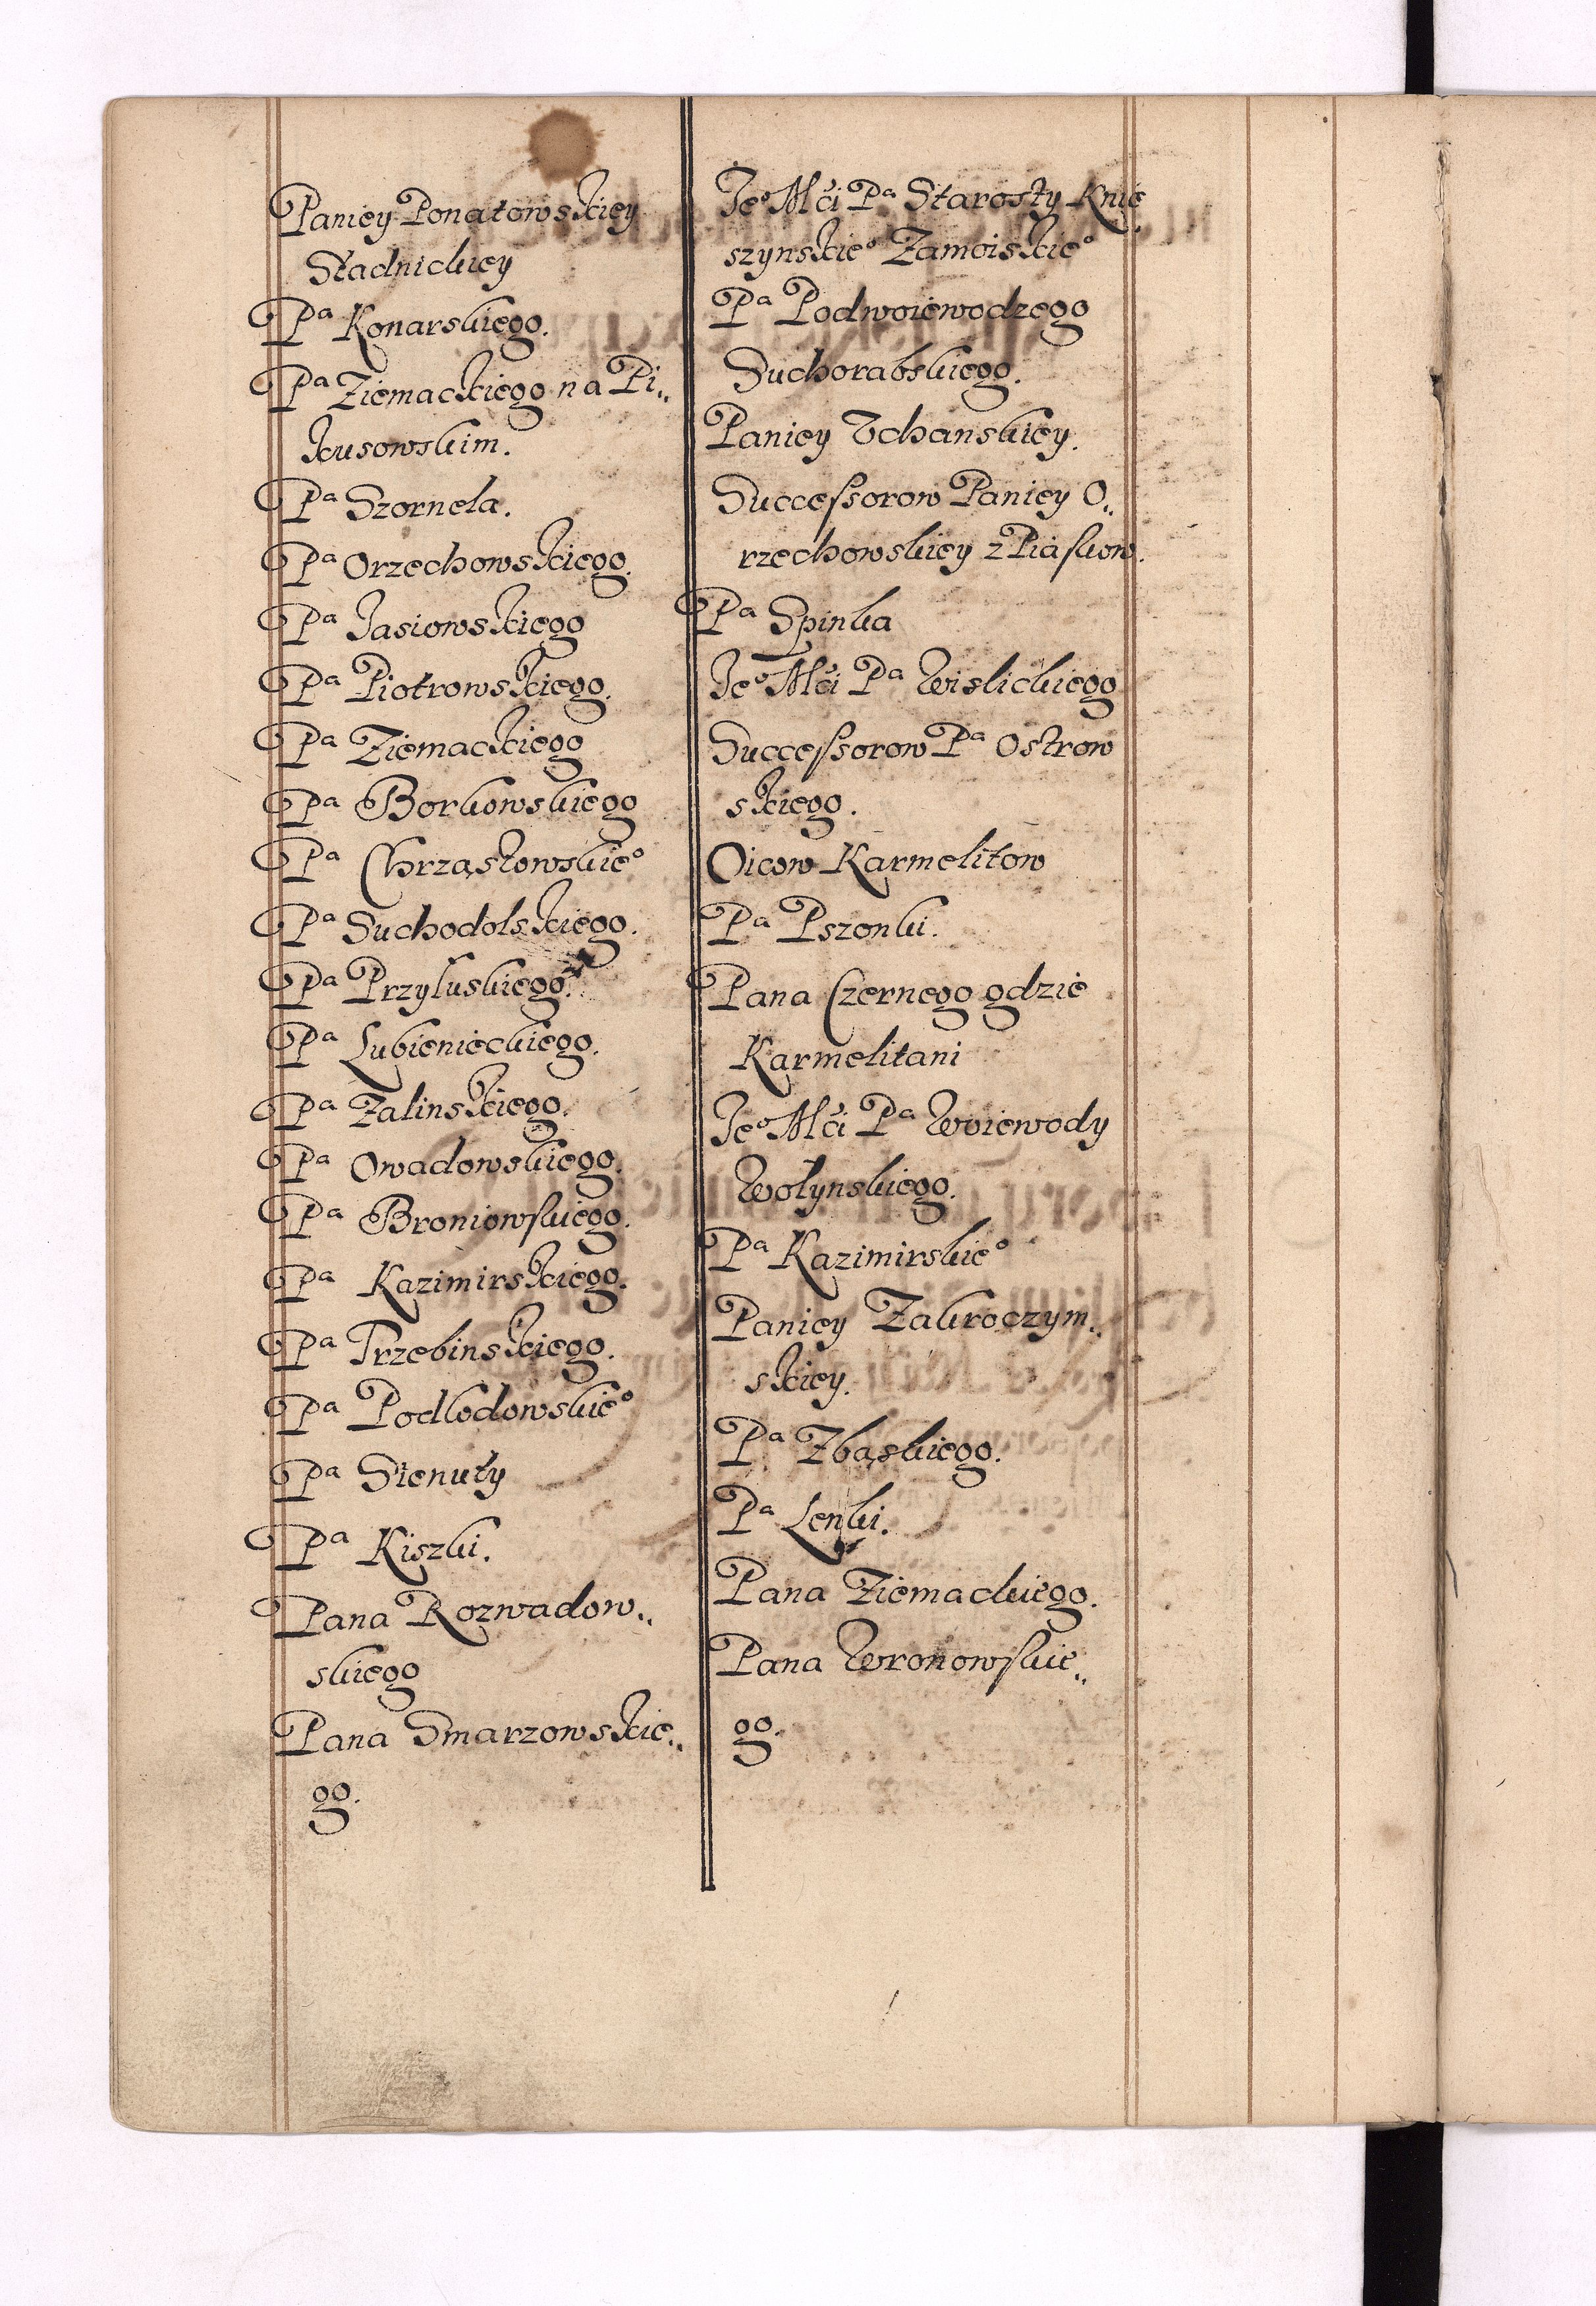 Paniey Ponatowskiey
Stadnickiey
Pa Konarskiego.
Pa Ziemackiego na Pi„
kusowskim.
Pa Szornela.
Pa Orzechowskiego.
Pa Jasiowskiego
Pa Piotrowskiego.
Pa Ziemackiego
Pa Borkowskiego
Pa Chrząstowskieo
Pa Suchodolskiego.
Pa Przyłuskiego.
Pa Lubienieckiego.
Pa Zalinskiego.
Pa Owadowskiego.
Pa Broniowskiego.
Pa Kazimirskiego.
Pa Trzebinskiego.
Pa Podlodowskieo
Pa Sienuty
Pa Kiszki.
Pana Rozwadow„
skiego
Pana Smarzowskie„
go.
Jeo Mći Pa Starosty Knie
szynskieo Zamoiskieo
Pa Podwoiewodzego
Suchorabskiego.
Paniey Uchanskiey.
Successorow Paniey O„
rzechowskiey z Piaskow.
Pa Spinka
Jeo Mći Pa Wislickiego
Successorow Pa Ostrow
skiego.
Oicow Karmelitow
Pa Pszonki.
Pana Czernego gdzie
Karmelitani
Jeo Mći Pa Woiewody
Wołynskiego.
Pa Kazimirskieo
Paniey Zakroczym„
skiey.
Pa Zbąskiego.
Pa Lenki.
Pana Ziemackiego.
Pana Wronowskie„
go.